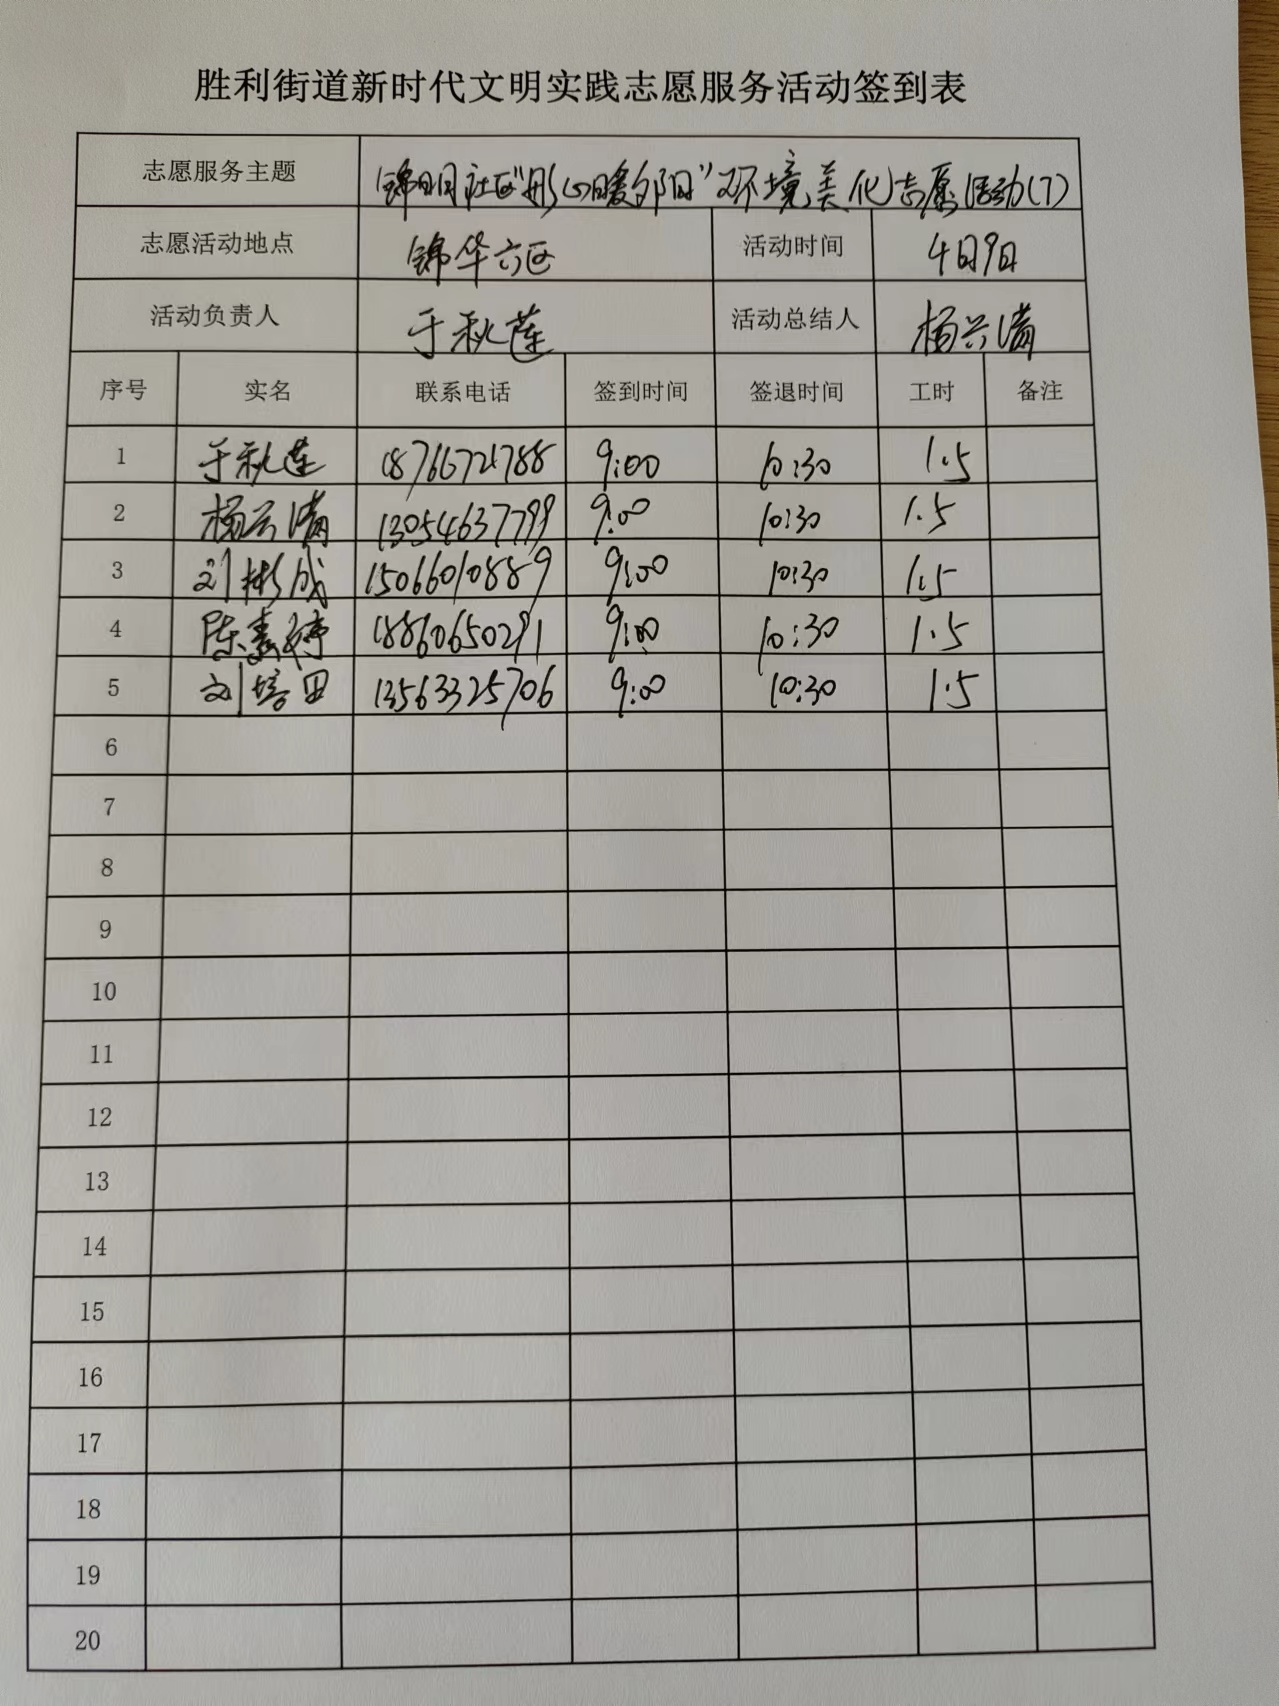 胜利街道新时代文明实践志愿服务活动签到表
志愿服务主题 锦明社区"彤心暖夕阳"环境美化志愿活动(7)
志愿活动地点 锦华六区 活动时间 4月9日
活动负责人 于秋莲 活动总结人 杨兴满
序号 实名 联系电话 签到时间 签退时间 工时 备注
1 于秋莲 18766721788 9:00 10:30 1.5
2 杨兴满 13054637799 9:00 10:30 1.5
3 刘彬成 15066010889 9:00 10:30 1.5
4 陈素婷 18860650291 9:00 10:30 1.5
5 刘培田 13563325706 9:00 10:30 1.5
6
7
8
9
10
11
12
13
14
15
16
17
18
19
20